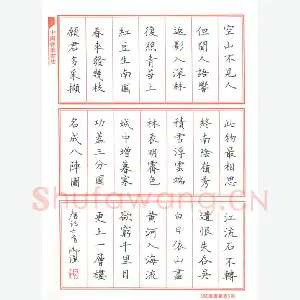 空山不見人
但聞人語響
返影入深林
復照青苔上
紅豆生南國
春來發幾枝
願君多采擷
此物最相思
終南陰嶺秀
積雪浮雲端
林表明霽色
城中增暮寒
功蓋三分國
名成八陣圖
江流石不轉
遺恨失吞吳
白日依山盡
黃河入海流
欲窮千里目
更上一層樓
Shufawang.CN